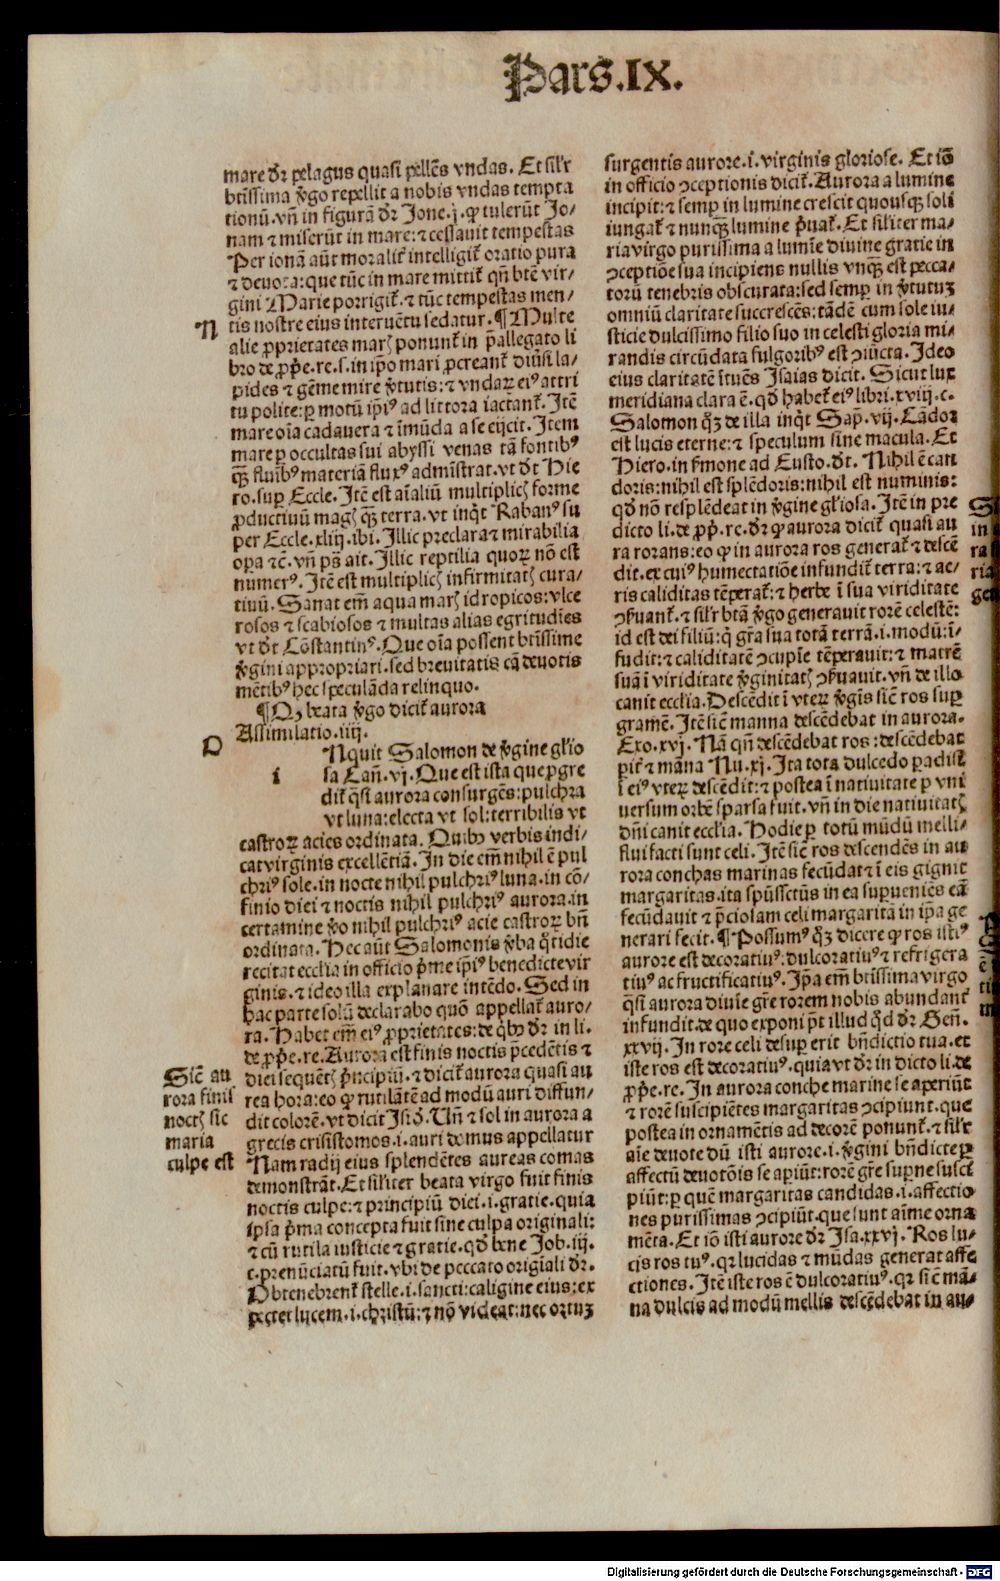 Pars.IX.
mare dr̄ pelagus quasi pellēs vndas. Et silr̄
btīssima v̄go repellit a nobis vndas tempta
tionū. vn̄ in figurā dr̄ Jone.j. ꝙ tulerūt Jo-
nam ⁊ miserūt in mare: ⁊ cessauit tempestas
Per ionā aūt moralit̄ intelligit̄ oratio pura
⁊ deuota: que tūc in mare mittit̄ qn̄ btē vir-
gini Marie porrigit̄. ⁊ tūc tempestas men-
N
tis nostre eius interuētu sedatur. ¶ Multe
alie ꝓprietates marꝭ ponunt̄ in p̄allegato li
bro de ꝓp̄e.re.s. in ip̄o mari ꝓcreant̄ diūsi la-
pides ⁊ gēme mire v̄tutis: ⁊ vndaꝝ eiꝰ attri
tu polite: ꝑ motū ip̄iꝰ ad littora iactant̄. Jtē
mare oīa cadauera ⁊ īmūda a se eijcit. Item
mare ꝑ occultas sui abyssi venas tā fontibꝰ
qꝫ fluībꝰ materiā fluxꝰ admīstrat. vt dt̄ Hie
ro. suꝑ Eccle. Jtē est aīaliū multiplicꝭ forme
ꝓductiuū magꝭ qꝫ terra. vt inqt̄ Rabanꝰ su
per Eccle.xliij. ibi. Illic preclara ⁊ mirabilia
oꝑa ⁊c̄. vn̄ ps̄ ait. Illic reptilia quoꝝ nō est
numerꝰ. Jtē est multiplicꝭ infirmitatꝭ cura-
tiuū. Sanat em̄ aqua marꝭ idropicos: vlce
rosos ⁊ scabiosos ⁊ multas alias egritudīes
vt dt̄ Cōstantinꝰ. Que oīa possent btīssime
v̄gini appropriari. sed breuitatis cā deuotis
mētibꝰ hec speculāda relinquo.
¶ Qꝫ beata v̄go dicit̄ aurora
Assimilatio.iiij.
O
i
Nquit Salomon de v̄gine gl̄io
sa Can̄.vj. Que est ista que ꝓgre
dit̄ qs̄i aurora consurgēs: pulchra
vt luna: electa vt sol: terribilis vt
castroꝝ acies ordinata. Quibꝫ verbis indi-
cat virginis excellētiā. In die em̄ nihil ē pul
chriꝰ sole. in nocte nihil pulchriꝰ luna. in cō-
finio diei ⁊ noctis nihil pulchriꝰ aurora. in
certamine v̄o nihil pulchriꝰ acie castroꝝ bn̄
ordinata. Hec aūt Salomonis v̄ba q̄tidie
recitat ecclīa in officio p̄me ip̄iꝰ benedicte vir
ginis. ⁊ ideo illa explanare intēdo. Sed in
hac parte solū declarabo quō appellat̄ auro-
ra. Habet em̄ eiꝰ ꝓprietates: de qbꝫ dr̄ in li.
de ꝓp̄e.re. Aurora est finis noctis p̄cedētis ⁊
Sic̄ au
rora finis
noctꝭ sic
maria
culpe est
diei sequētꝭ p̄ncipiū. ⁊ dicit̄ aurora quasi au
rea hora: eo ꝙ rutilātē ad modū auri diffun-
dit colorē. vt dicit Jsiō. Un̄ ⁊ sol in aurora a
grecis crisistomos.i. auri domus appellatur
Nam radij eius splendētes aureas comas
demonstrāt. Et siliter beata virgo fuit finis
noctis culpe: ⁊ principiū diei.i. gratie. quia
ipsa p̄ma concepta fuit sine culpa originali:
⁊ cū rutila iusticie ⁊ gratie. qd̄ bene Job.iij.
c. prenūciatū fuit. vbi de peccato origīali dr̄.
Obtenebrent̄ stelle.i. sancti: caligine eius: ex
pectet lucem.i. christū: ⁊ nō videat: nec ortuꝫ
surgentis aurore.i. virginis gloriose. Et iō
in officio ꝯceptionis dicit̄. Aurora a lumine
incipit: ⁊ semꝑ in lumine crescit quousqꝫ soli
iungat̄ ⁊ nunqꝫ lumine p̄uat̄. Et siliter ma-
ria virgo purissima a lumīe diuine gratie in
ꝯceptiōe sua incipiens nullis vnqꝫ est pecca-
torū tenebris obscurata: sed semꝑ in v̄tutuꝫ
omniū claritate succrescēs: tādē cum sole iu-
sticie dulcissimo filio suo in celesti gloria mi-
randis circūdata fulgoribꝰ est ꝯiūcta. Ideo
eius claritatē ītuēs Isaias dicit. Sicut lux
meridiana clara ē. qd̄ habet̄ eiꝰ libri.xviij.c.
Salomon qꝫ de illa inqt̄ Sap̄.vij. Cādor
est lucis eterne: ⁊ speculum sine macula. Et
Hiero. in s̄mone ad Eusto. dt̄. Nihil ē can
doris: nihil est splēdoris: nihil est numinis:
qd̄ nō resplēdeat in v̄gine gl̄iosa. Jtē in pre
dicto li.de ꝓp̄.re. dr̄ ꝙ aurora dicit̄ quasi au
ra rorans: eo ꝙ in aurora ros generat̄ ⁊ descē
dit. ex cuiꝰ humectatiōe infundit̄ terra: ⁊ ae-
ris caliditas tēperat̄: ⁊ herbe ī sua viriditate
ꝯs̄uant̄. ⁊ silr̄ btā v̄go generauit rorē celestē:
id est dei filiū: q̄ gr̄a sua totā terrā.i. modū: ī-
fudit: ⁊ caliditatē ꝯcupīe tēperauit: ⁊ matrē
suā ī viriditate v̄ginitatꝭ ꝯs̄uauit. vn̄ de illo
canit ecclīa. Descēdit ī vteꝝ v̄gīs sic̄ ros suꝑ
gramē. Jtē sic̄ manna descēdebat in aurora.
Exo.xvj. Nā qn̄ descēdebat ros: descēdebat
ꝑit̄ ⁊ māna Nu.xj. Ita tota dulcedo ꝑadisi
ī eiꝰ vteꝝ descēdit: ⁊ postea ī natiuitate ꝑ vni
uersum orbē sparsa fuit. vn̄ in die natiuitatꝭ
dn̄i canit ecclīa. Hodie ꝑ totū mūdū melli-
flui facti sunt celi. Jtē sic̄ ros descendēs in au
rora conchas marinas fecūdat ⁊ ī eis gignit
margaritas. ita spūssctūs in ea suꝑueniēs eā
fecūdauit ⁊ p̄ciosam celi margaritā in ip̄a ge
nerari fecit. ¶ Possumꝰ qꝫ dicere ꝙ ros istiꝰ
aurore est decoratiuꝰ: dulcoratiuꝰ ⁊ refrigera
tiuꝰ ac fructificatiuꝰ. Ip̄a em̄ btīssima virgo
qs̄i aurora diuīe gr̄e rorem nobis abundant̄
infundit. de quo exponi p̄t illud qd̄ dr̄ Gen̄.
xxvij. In rore celi desuꝑ erit bn̄dictio tua. et
iste ros est decoratiuꝰ. quia vt dr̄ in dicto li.de
ꝓp̄e.re. In aurora conche marine se aperiūt
⁊ rorē suscipiētes margaritas ꝯcipiunt. que
postea in ornamētis ad decorē ponunt̄. ⁊ silr̄
aīe deuote dū isti aurore.i. v̄gini bn̄dicte ꝑ
affectū deuotōis se aꝑiūt: rorē gr̄e suꝑne susci
piūt: ꝑ quē margaritas candidas.i. affectio
nes purissimas ꝯcipiūt. que sunt aīme orna
mēta. Et iō isti aurore dr̄ Isa.xxvj. Ros lu-
cis ros tuꝰ. qr lucidas ⁊ mūdas generat affe
ctiones. Jtē iste ros ē dulcoratiuꝰ. qr sic̄ mā-
na dulcis ad modū mellis descēdebat in au-
Digitalisierung gefördert durch die Deutsche Forschungsgemeinschaft - DFG